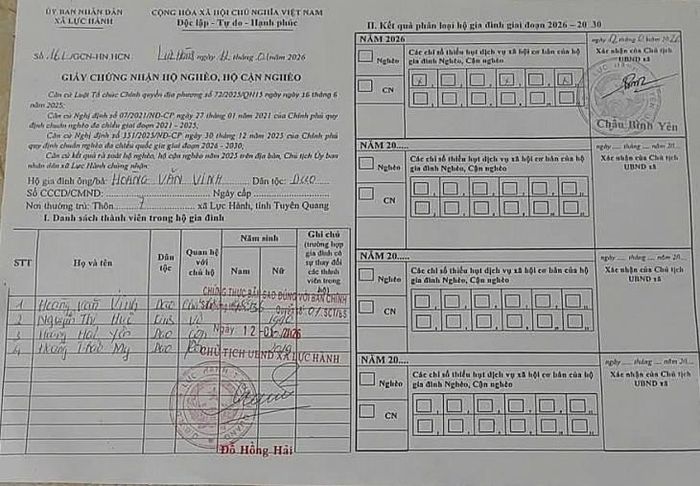 ỦY BAN NHÂN DÂN
XÃ LỰC HÀNH
CỘNG HÒA XÃ HỘI CHỦ NGHĨA VIỆT NAM
Độc lập - Tự do - Hạnh phúc
Số 161/GCN-HN.HCN
Lực Hành ngày 12 tháng 01 năm 2026
GIẤY CHỨNG NHẬN HỘ NGHÈO, HỘ CẬN NGHÈO
Căn cứ Luật Tổ chức Chính quyền địa phương số 72/2025/QH15 ngày ngày 16 tháng 6 năm 2025;
Căn cứ Nghị định số 07/2021/NĐ-CP ngày 27 tháng 01 năm 2021 của Chính phủ quy định chuẩn nghèo đa chiều giai đoạn 2021 - 2025;
Căn cứ Nghị định số 351/2025/NĐ-CP ngày 30 tháng 12 năm 2025 của Chính phủ quy định chuẩn nghèo đa chiều quốc gia giai đoạn 2026 - 2030;
Căn cứ kết quả rà soát hộ nghèo, hộ cận nghèo năm 2025 trên địa bàn, Chủ tịch Ủy ban nhân dân xã Lực Hành chứng nhận:
Hộ gia đình ông/bà: HOÀNG VĂN VINH Dân tộc: DAO
Số CCCD/CMND: Ngày cấp
Nơi thường trú: Thôn 7 xã Lực Hành, tỉnh Tuyên Quang
I. Danh sách thành viên trong hộ gia đình
STT
Họ và tên
Dân tộc
Quan hệ với chủ hộ
Năm sinh
Nam
Nữ
Ghi chú
(trường hợp gia đình có sự thay đổi các thành viên trong hộ)
1 Hoàng Văn Vinh Dao
2 Nguyễn Thị Huế Kinh Vợ
3 Hoàng Hải Yến Dao Con
4 Hoàng Thảo My Dao Con 2019
CHỨNG THỰC BẢN SAO ĐÚNG VỚI BẢN CHÍNH
Quyển số: 01.SCT/BS
Ngày 12-01-2026
CHỦ TỊCH UBND XÃ LỰC HÀNH
Đỗ Hồng Hải
II. Kết quả phân loại hộ gia đình giai đoạn 2026 – 20 30
NĂM 2026
Nghèo
CN
Các chỉ số thiếu hụt dịch vụ xã hội cơ bản của hộ gia đình Nghèo, Cận nghèo
ngày 12 tháng 01 năm 2026
Xác nhận của Chủ tịch UBND xã
Châu Bình Yên
NĂM 20.....
Nghèo
CN
Các chỉ số thiếu hụt dịch vụ xã hội cơ bản của hộ gia đình Nghèo, Cận nghèo
ngày ..... tháng ..... năm 20....
Xác nhận của Chủ tịch UBND xã
NĂM 20.....
Nghèo
CN
Các chỉ số thiếu hụt dịch vụ xã hội cơ bản của hộ gia đình Nghèo, Cận nghèo
ngày ..... tháng ..... năm 20....
Xác nhận của Chủ tịch UBND xã
NĂM 20.....
Nghèo
CN
Các chỉ số thiếu hụt dịch vụ xã hội cơ bản của hộ gia đình Nghèo, Cận nghèo
ngày ..... tháng ..... năm 20....
Xác nhận của Chủ tịch UBND xã